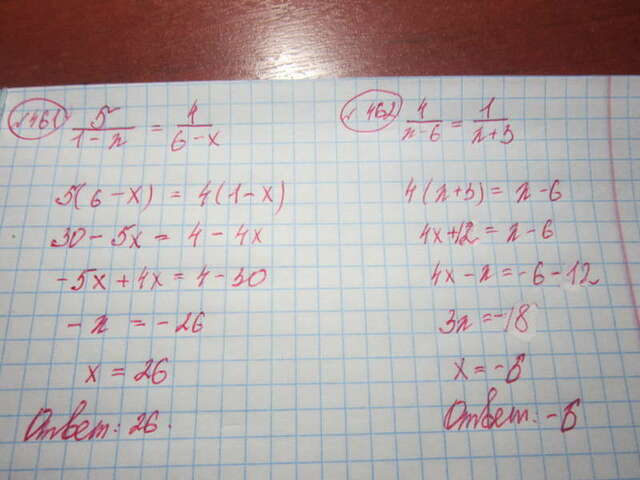 №461
5/(1-x) = 4/(6-x)
5(6-x) = 4(1-x)
30-5x = 4-4x
-5x+4x = 4-30
-x = -26
x = 26
Ответ: 26.
№462
4/(x-6) = 1/(x+3)
4(x+3) = x-6
4x+12 = x-6
4x-x = -6-12
3x = -18
x = -6
Ответ: -6